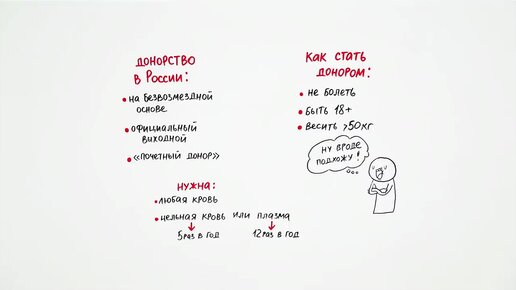 ДОНОРСТВО
В РОССИИ:
• НА БЕЗВОЗМЕЗДНОЙ
ОСНОВЕ
• ОФИЦИАЛЬНЫЙ
ВЫХОДНОЙ
• «ПОЧЕТНЫЙ ДОНОР»
КАК СТАТЬ
ДОНОРОМ:
• НЕ БОЛЕТЬ
• БЫТЬ 18+
• ВЕСИТЬ >50КГ
НУ ВРОДЕ
ПОДХОЖУ!
НУЖНА:
• ЛЮБАЯ КРОВЬ
• ЦЕЛЬНАЯ КРОВЬ ИЛИ ПЛАЗМА
5 РАЗ В ГОД
12 РАЗ В ГОД